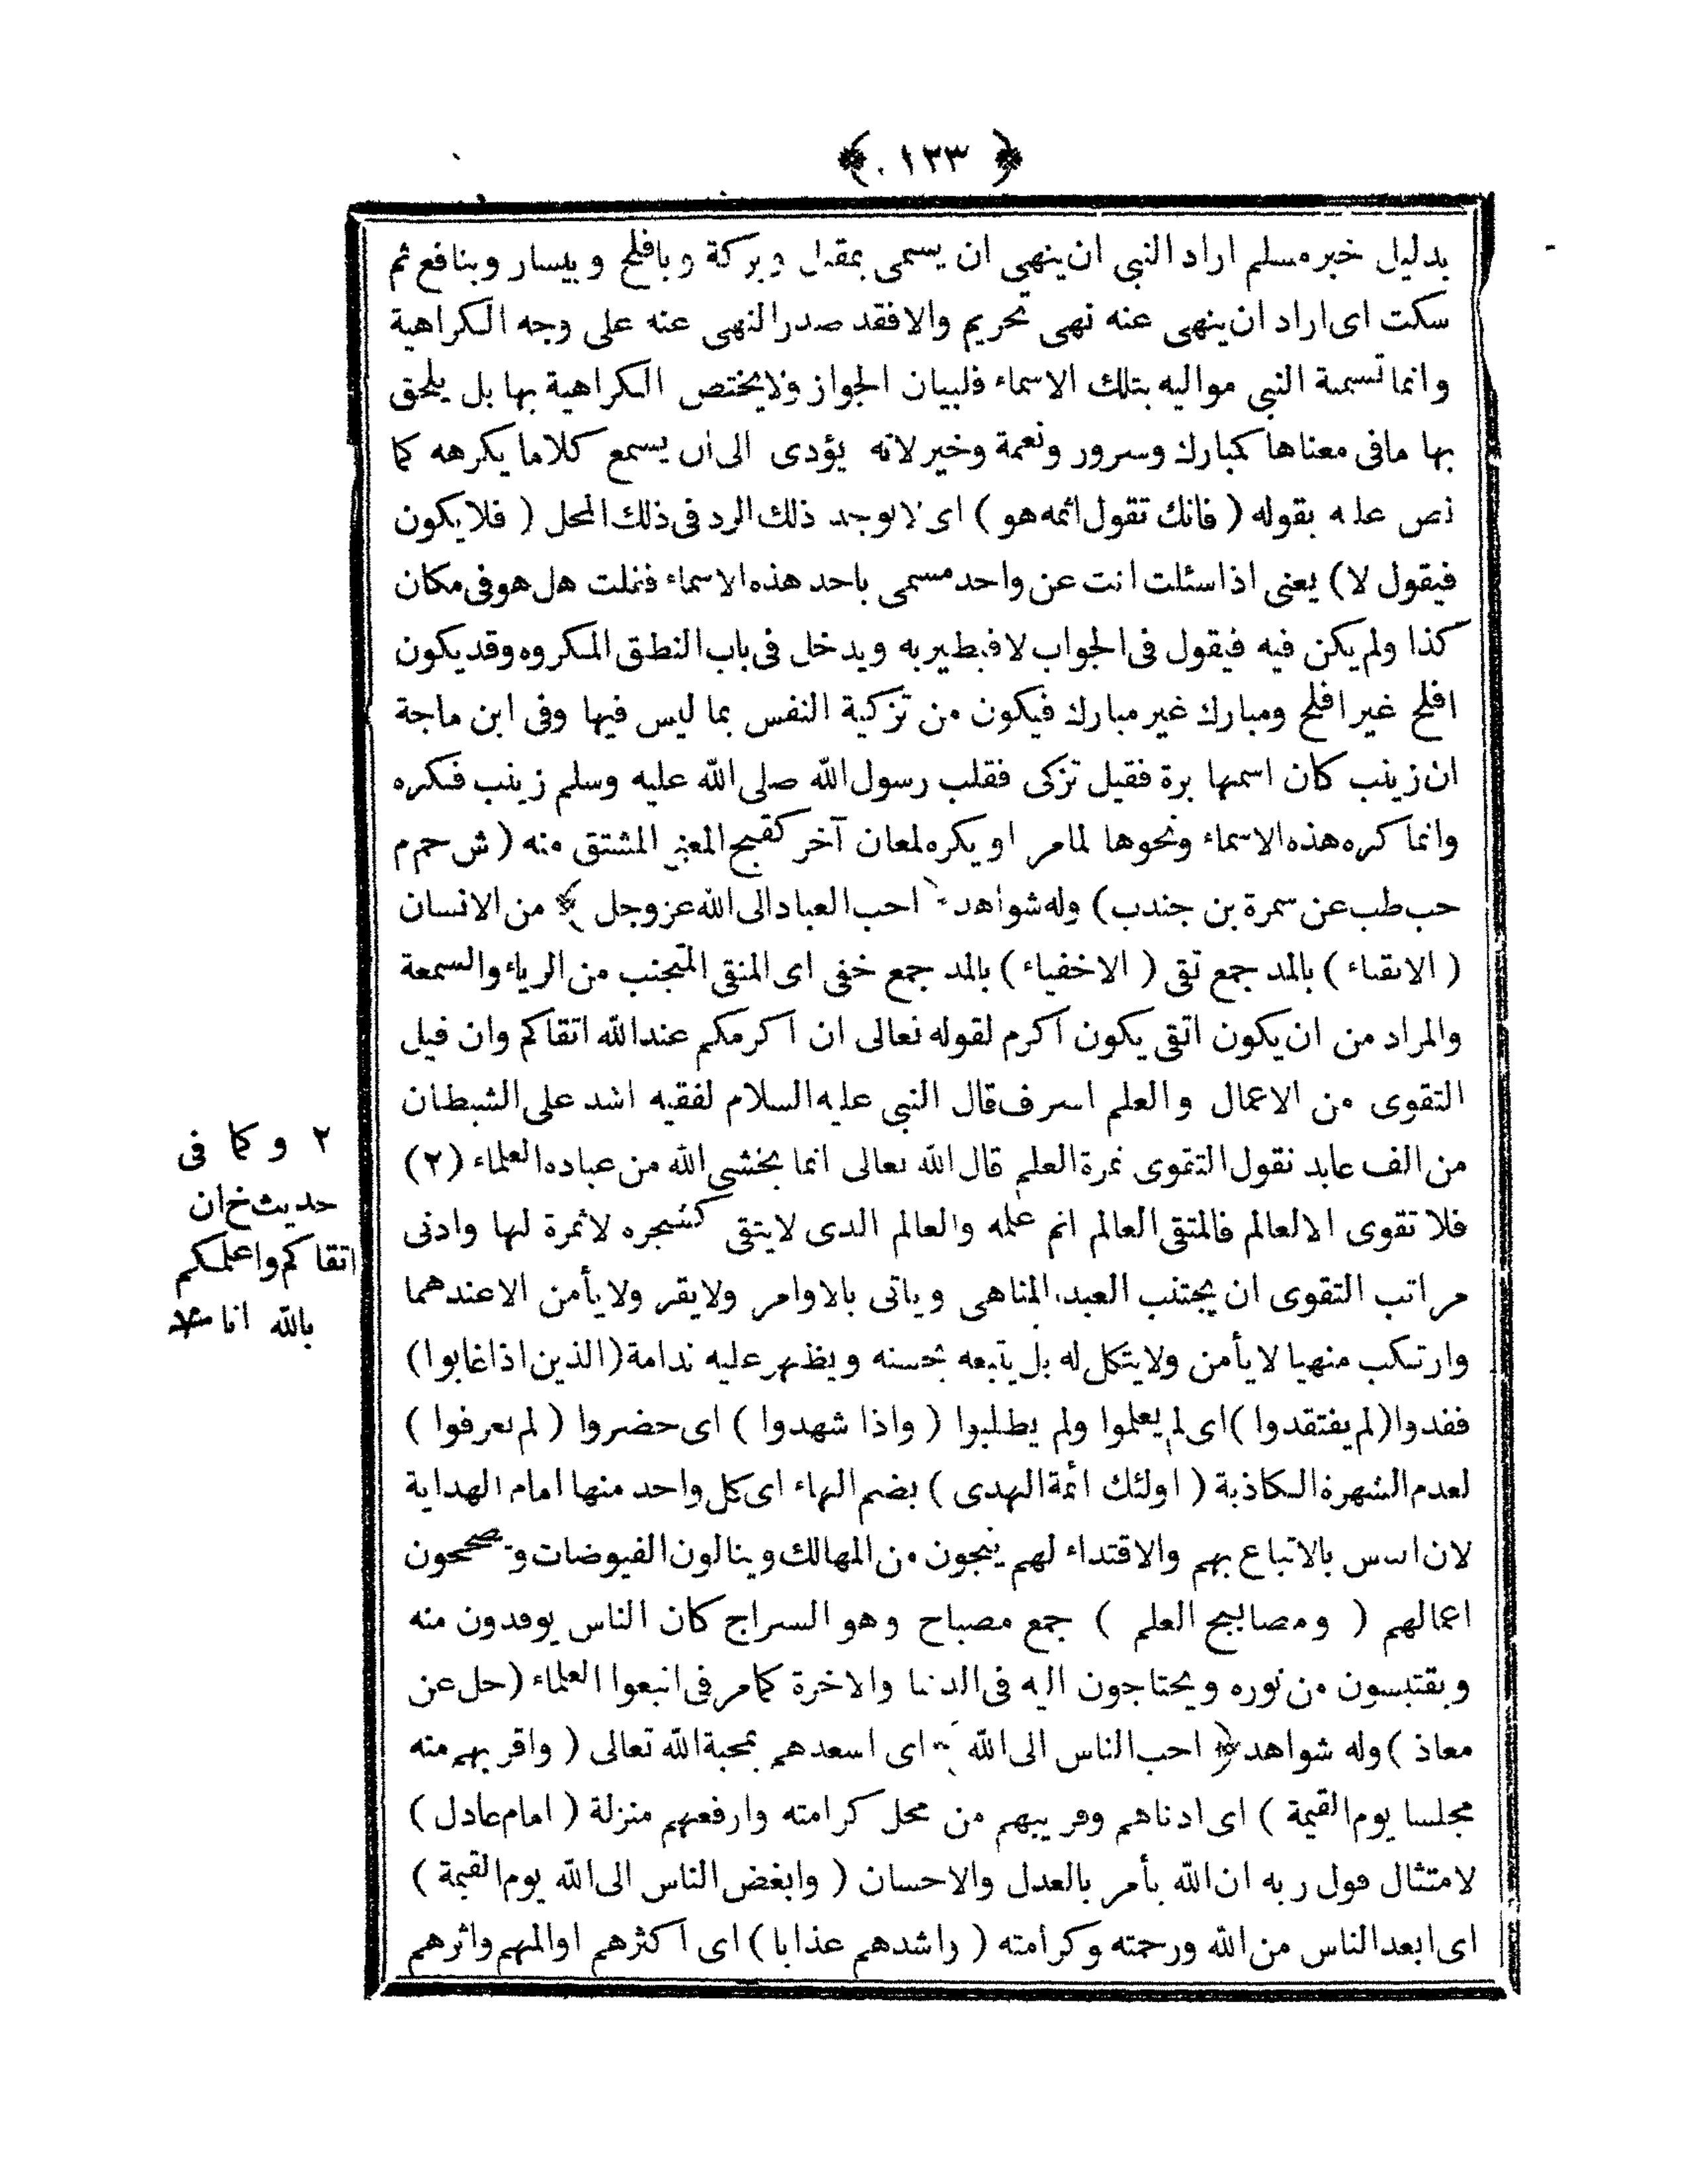 ﴿ ١٣٣ ﴾
بدليل خبر مسلم اراد النبى ان ينهى ان يسمى بمقبل وبركة وبافلح وبيسار وبنافع ثم
سكت اى اراد ان ينهى عنه نهى تحريم والا فقد صدر النهى عنه على وجه الكراهية
وانما تسمية النبى مواليه بتلك الاسماء فلبيان الجواز ولا يختص الكراهية بها بل يلحق
بها ما فى معناها كمبارك وسرور ونعمة وخير لانه يؤدى الى ان يسمع كلاما يكرهه كما
نص عليه بقوله ( فانك تقول اثمه هو ) اى لا يوجد ذلك الرد فى ذلك المحل ( فلا يكون
فيقول لا ) يعنى اذا سئلت انت عن واحد مسمى باحد هذه الاسماء فقلت هل هو فى مكان
كذا ولم يكن فيه فيقول فى الجواب لا فيطير به ويدخل فى باب النطق المكروه وقد يكون
افلح غير افلح ومبارك غير مبارك فيكون من تزكية النفس بما ليس فيها وفى ابن ماجة
ان زينب كان اسمها برة فقيل تزكى فقلب رسول الله صلى الله عليه وسلم زينب فكره
وانما كره هذه الاسماء ونحوها لما مر او يكره لمعان آخر كقبح المعنى المشتق منه ( ش حم م
حب طب عن سمرة بن جندب ) وله شواهد ﴿ احب العباد الى الله عز وجل ﴾ من الانسان
( الاتقياء ) بالمد جمع تقى ( الاخفياء ) بالمد جمع خفى اى المتقى المتجنب من الرياء والسمعة
والمراد من ان يكون اتقى يكون اكرم لقوله تعالى ان اكرمكم عند الله اتقاكم وان قيل
التقوى من الاعمال والعلم اشرف قال النبى عليه السلام لفقيه اشد على الشيطان
من الف عابد نقول التقوى ثمرة العلم قال الله تعالى انما يخشى الله من عباده العلماء (٢)
فلا تقوى الا لعالم فالمتقى العالم اتم علمه والعالم الذى لا يتقى كشجره لا ثمرة لها وادنى
مراتب التقوى ان يجتنب العبد المناهى وياتى بالاوامر ولا يقر ولا يأمن الا عندهما
وارتكب منهيا لا يأمن ولا يتكل له بل يتبعه بحسنه ويظهر عليه ندامة ( الذين اذا غابوا )
ففدوا ( لم يفتقدوا ) اى لم يعلموا ولم يطلبوا ( واذا شهدوا ) اى حضروا ( لم يعرفوا )
لعدم الشهرة الكاذبة ( اولئك ائمة الهدى ) بضم الهاء اى كل واحد منها امام الهداية
لان الناس بالاتباع بهم والاقتداء لهم ينجون من المهالك وينالون الفيوضات و
اعمالهم ( ومصابيح العلم ) جمع مصباح وهو السراج كان الناس يوقدون منه
ويقتبسون من نوره ويحتاجون اليه فى الدنيا والاخرة كما مر فى اتبعوا العلماء ( حل عن
معاذ ) وله شواهد ﴿ احب الناس الى الله ﴾ اى اسعدهم بمحبة الله تعالى ( واقربهم منه
مجلسا يوم القيمة ) اى ادناهم وقريبهم من محل كرامته وارفعهم منزلة ( امام عادل )
لامتثال قول ربه ان الله يأمر بالعدل والاحسان ( وابغض الناس الى الله يوم القيمة )
اى ابعد الناس من الله ورحمته وكرامته ( واشدهم عذابا ) اى اكثرهم اوالمهم واثرهم
٢ وكما فى
حديث خ ان
اتقاكم واعلمكم
بالله انا